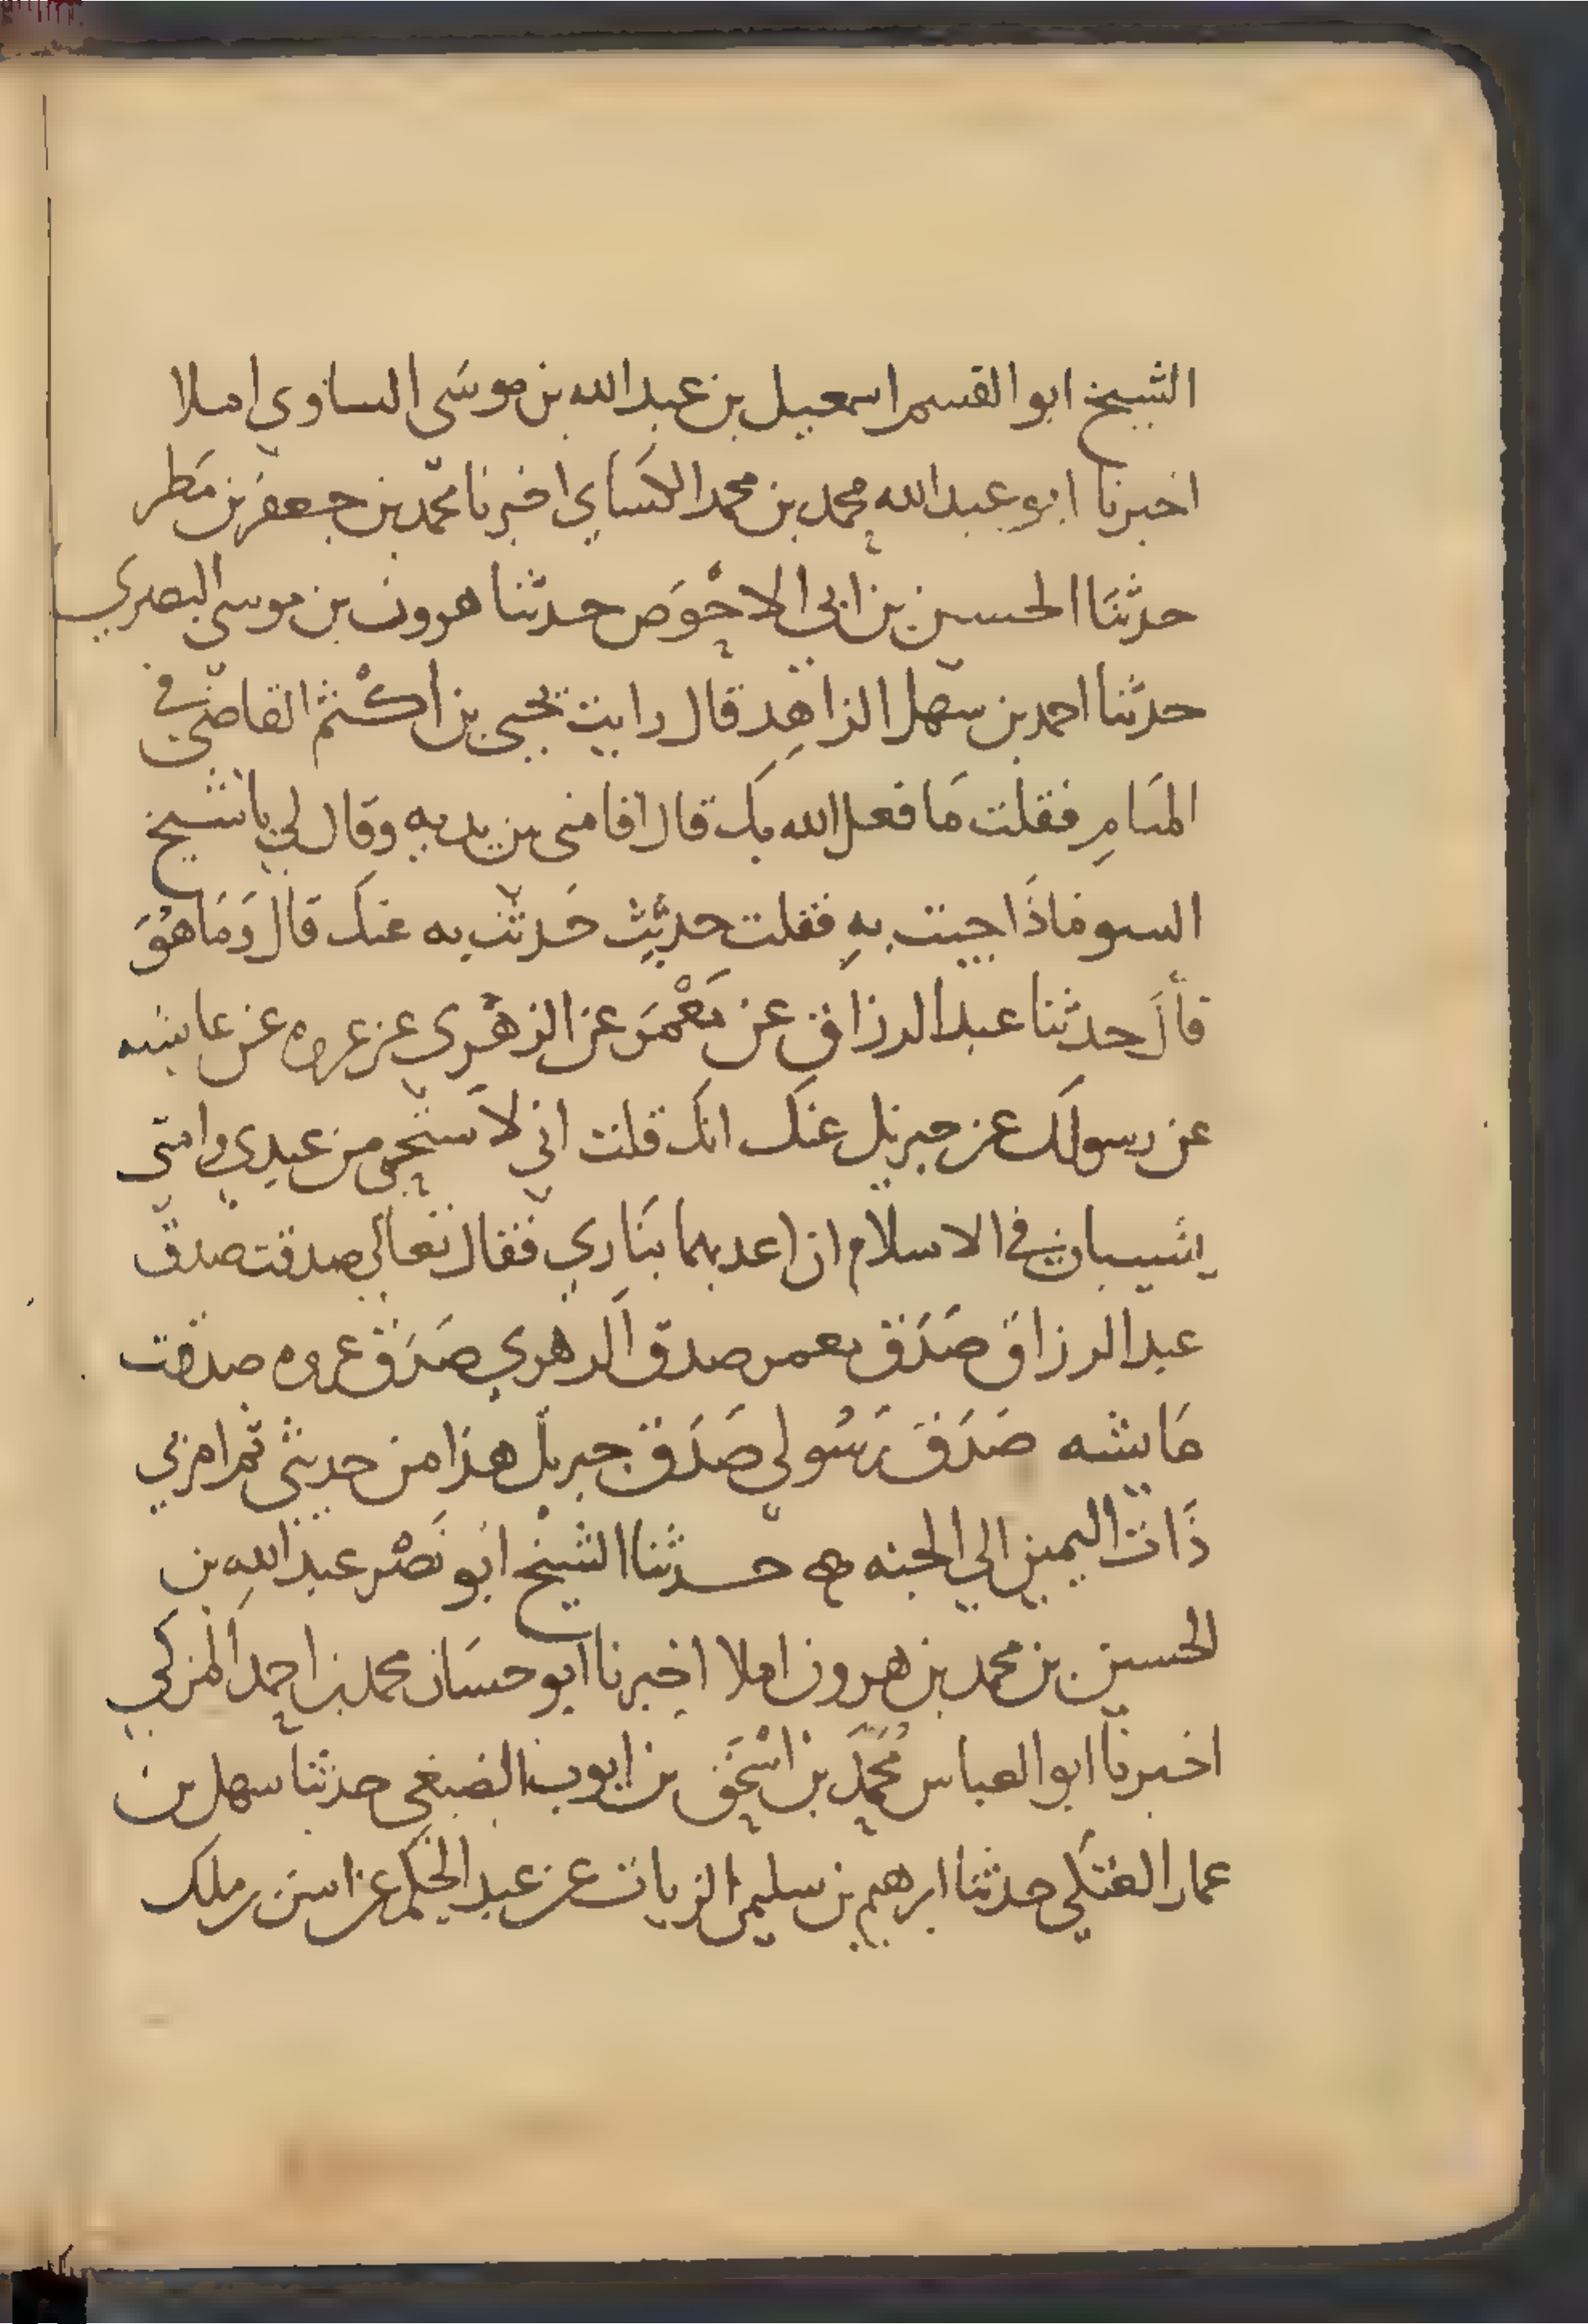 الشيخ ابو القسم اسمعيل بن عبد الله بن موسَى الساوي املا
اخبرنا ابو عبد الله محمد بن محمد الكسَاي اخبرنا محمّد بن جعفر بن مَطر
حدثنَا الحسين بن ابي الاحْوَص حدثنا هرون بن موسى البصري
حدثنا احمد بن سهل الزاهِد قال رايت يحيى بن اكْثم القاضي في
المنَامِ فقلت مَا فعل الله بكَ قال اقامني بين يديه وقال لي يا شيخ
السو فاذَا جيت بهِ فقلت حديث حَدثت به عنكَ قال وَمَا هُوَ
قال حدثنا عبد الرزاق عن مَعْمَر عن الزهْري عن عروه عن عايشه
عن رسولكَ عن جبريل عنكَ انكَ قلت اني لاَستحي من عبدي وامتي
يشيبان في الاسلام ان اعذبهما بنَاري فقال تعالى صدقت صدق
عبد الرزاق صَدَق معمر صدق الزهري صَدَق عروه صدقت
عَايشه صَدَقَ رَسُولي صَدَق جبريل هذا من حديثي ثم امر بي
ذَات اليمين الي الجنه ه حدثنا الشيخ ابو نَصْر عبد اللهِ بن
الحسين بن محمد بن هرون املا اخبرنا ابو حسَان محمد بن احمد المزكي
اخبرنَا ابو العباس مُحَمَّد بن اسْحَق بن ايوب الضبغي حدثنا سهل بن
عمار العَتَكي حدثنا ابرهيم بن سليمن الزيات عن عبد الحَكم عن انس بن ملك